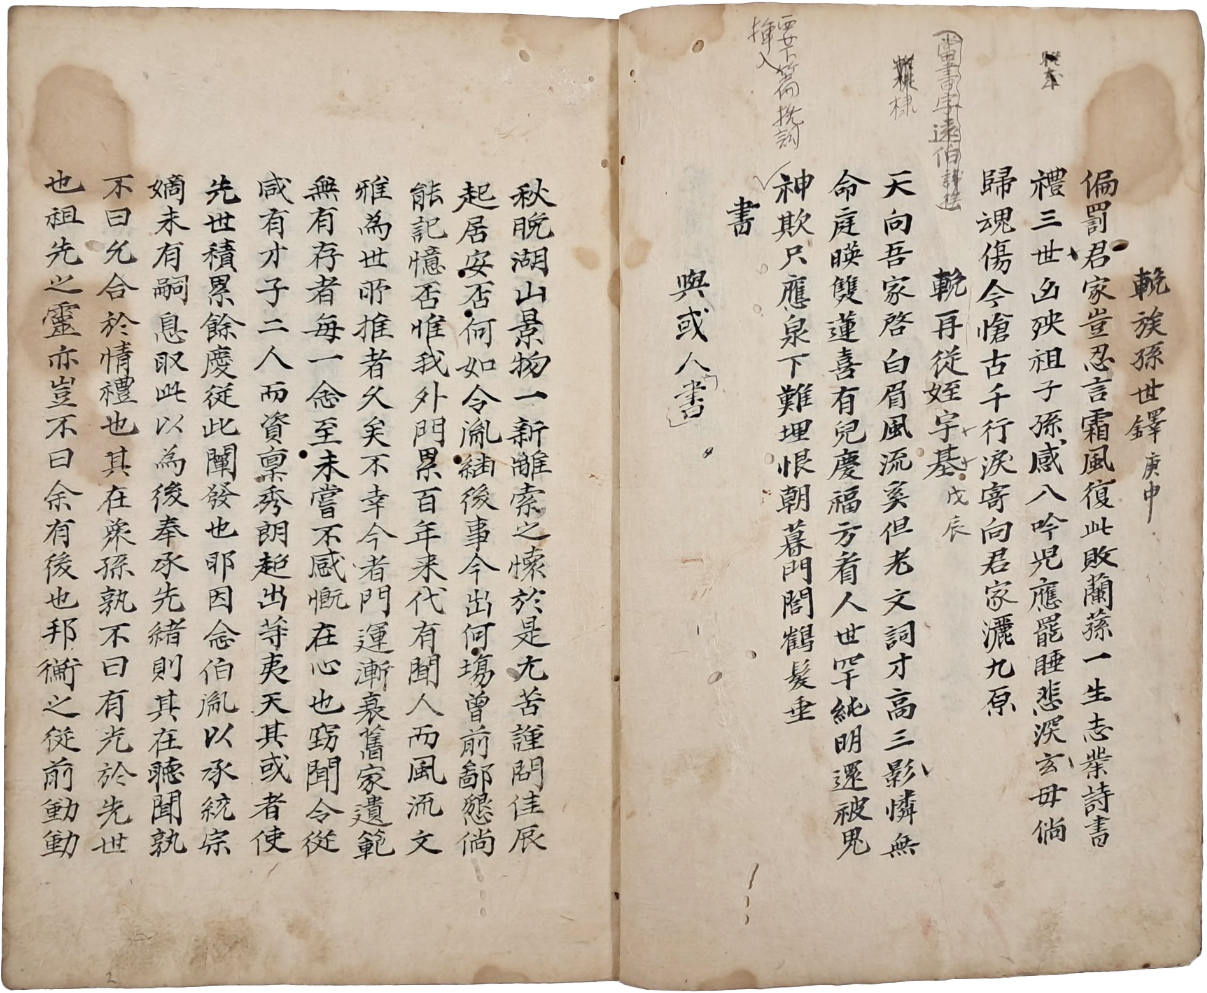 輓族孫世鐸 庚申
偏罰君家豈忍言霜風復此敗蘭蓀一生志業詩書
禮三世凶殃祖子孫感八吟兇應罷睡悲深玄母倘
歸魂傷今愴古千行淚寄向君家灑九原
輓再從姪宇基 戊辰
天向吾家啓白眉風流奚但老文詞才高三影憐無
命庭暎雙蓮喜有兒慶福方看人世罕純明還被鬼
神欺只應泉下難埋恨朝暮門閭鶴髮垂
書
與或人書
要下篇挽詞
揷入
棣
秋晩湖山景物一新離索之懷於是尤苦謹問佳辰
起居安否何如令胤緬後事今出何塲曾前鄙懇倘
能記憶否惟我外門累百年來代有聞人而風流文
雅為世所推者久矣不幸今者門運漸衰舊家遺範
無有存者每一念至未嘗不感慨在心也竊聞令從
咸有才子二人而資稟秀朗超出等夷天其或者使
先世積累餘慶從此闡發也耶因念伯胤以承統宗
嫡未有嗣息取此以為後奉承先緖則其在聽聞孰
不曰允合於情禮也其在衆孫孰不曰有光於先世
也祖先之靈亦豈不曰余有後也邦衡之從前動動